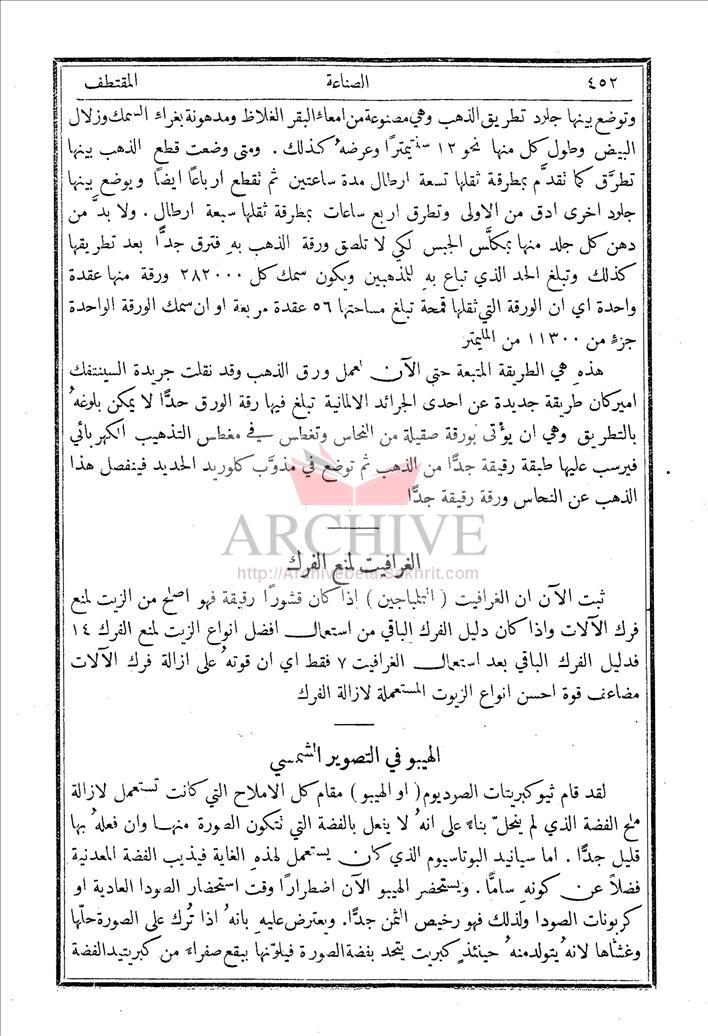 ٤٥٢ الصناعة المقتطف
وتوضع بينها جلود تطريق الذهب وهي مصنوعة من امعاء البقر الغلاظ ومدهونة بغراء السمك وزلال
البيض وطول كل منها نحو ١٢ سنتيمترًا وعرضهُ كذلك . ومتى وضعت قطع الذهب بينها
تطرَّق كما نقدَّم بمطرقة ثقلها تسعة ارطال مدة ساعتين ثم نقطع ارباعًا ايضًا ويوضع بينها
جلود اخرى ادق من الاولى وتطرق اربع ساعات بمطرقة ثقلها سبعة ارطال . ولا بدَّ من
دهن كل جلد منها بمكلَّس الجبس لكي لا تلصق ورقة الذهب بهِ فترق جدًّا بعد تطريقها
كذلك وتبلغ الحد الذي تباع بهِ للمذهبين ويكون سمك كل ٢٨٢٠٠٠ ورقة منها عقدة
واحدة اي ان الورقة التي ثقلها قمحة تبلغ مساحتها ٥٦ عقدة مربعة او ان سمك الورقة الواحدة
جزءٌ من ١١٣٠٠ من المليمتر
هذه هي الطريقة المتبعة حتى الآن لعمل ورق الذهب وقد نقلت جريدة السينتفك
اميركان طريقة جديدة عن احدى الجرائد الالمانية تبلغ فيها رقة الورق حدًّا لا يمكن بلوغهُ
بالتطريق وهي ان يؤتى بورقة صقيلة من النحاس وتغطس في مغطس التذهيب الكهربائي
فيرسب عليها طبقة رقيقة جدًّا من الذهب ثم توضع في مذوَّب كلوريد الحديد فينفصل هذا
الذهب عن النحاس ورقة رقيقة جدًّا
ARCHIVE
الغرافيت لمنع الفرك
http://Archivebeta.Sakhrit.com
ثبت الآن ان الغرافيت ( البلمباجين ) اذا كان قشورًا رقيقة فهو اصلح من الزيت لمنع
فرك الآلات واذا كان دليل الفرك الباقي من استعمال افضل انواع الزيت لمنع الفرك ١٤
فدليل الفرك الباقي بعد استعمال الغرافيت ٧ فقط اي ان قوتهُ على ازالة فرك الآلات
مضاعف قوة احسن انواع الزيوت المستعملة لازالة الفرك
الهيبو في التصوير الشمسي
لقد قام ثيوكبريتات الصوديوم ( او الهيبو ) مقام كل الاملاح التي كانت تستعمل لازالة
ملح الفضة الذي لم ينحلّ بناءً على انهُ لا يفعل بالفضة التي نتكون الصورة منها وان فعلهُ بها
قليل جدًّا . اما سيانيد البوتاسيوم الذي كان يستعمل لهذه الغاية فيذيب الفضة المعدنية
فضلاً عن كونه سامًّا . ويستحضر الهيبو الآن اضطرارًا وقت استحضار الصودا العادية او
كربونات الصودا ولذلك فهو رخيص الثمن جدًّا. ويعترض عليهِ بانهُ اذا تُرك على الصورة حلّها
وغشّاها لانهُ يتولد منهُ حينئذٍ كبريت يتحد بفضة الصورة فيلوّنها ببقع صفراء من كبريتيد الفضة